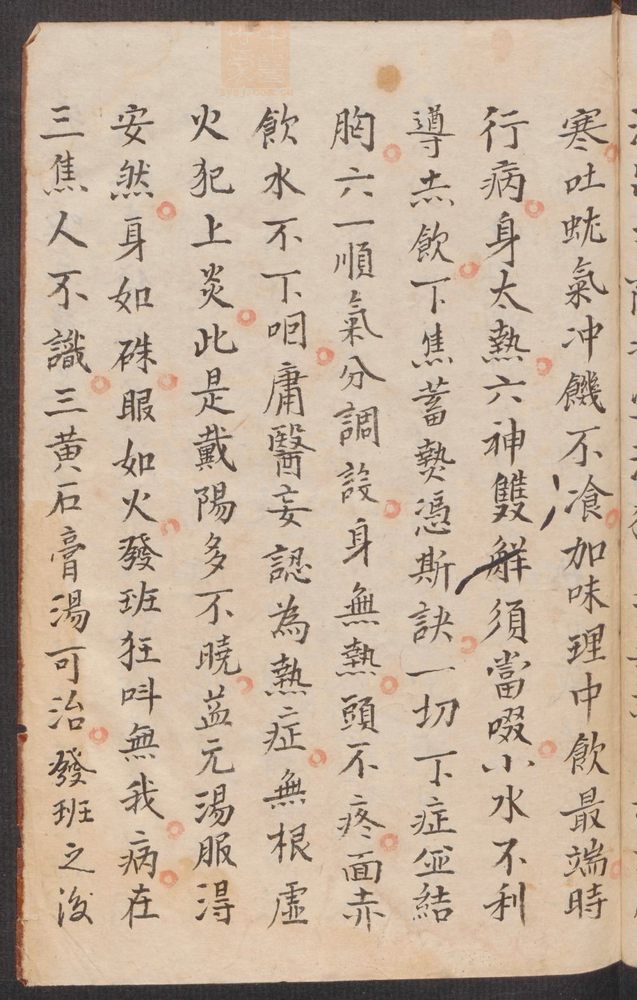 寒吐蚘氣冲饑不飡加味理中飲最端時
行病身太熱六神雙解須當啜小水不利
導赤飲下焦蓄熱憑斯訣一切下症並結
胸六一順氣分調設身無熱頭不疼面赤
飲水不下咽庸醫妄認為熱症無根虛
火犯上炎此是戴陽多不曉益元湯服淂
安然身如硃眼如火發班狂呌無我病在
三焦人不識三黄石膏湯可治發班之後